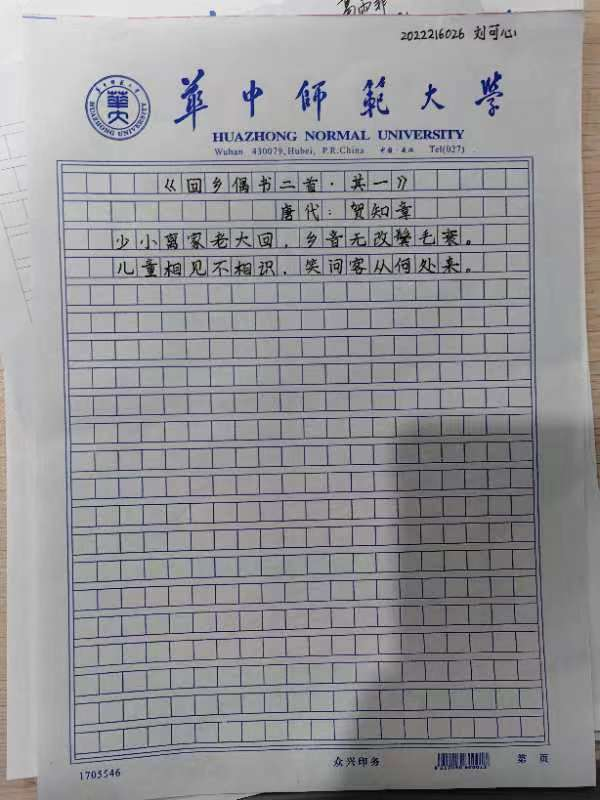 2022216026 刘可心
華中師範大學
HUAZHONG NORMAL UNIVERSITY
Wuhan 430079, Hubei, P.R.China 中国·武汉 Tel(027)
《回乡偶书二首·其一》
唐代：贺知章
少小离家老大回，乡音无改鬓毛衰。
儿童相见不相识，笑问客从何处来。
众兴印务
第 页
1705546